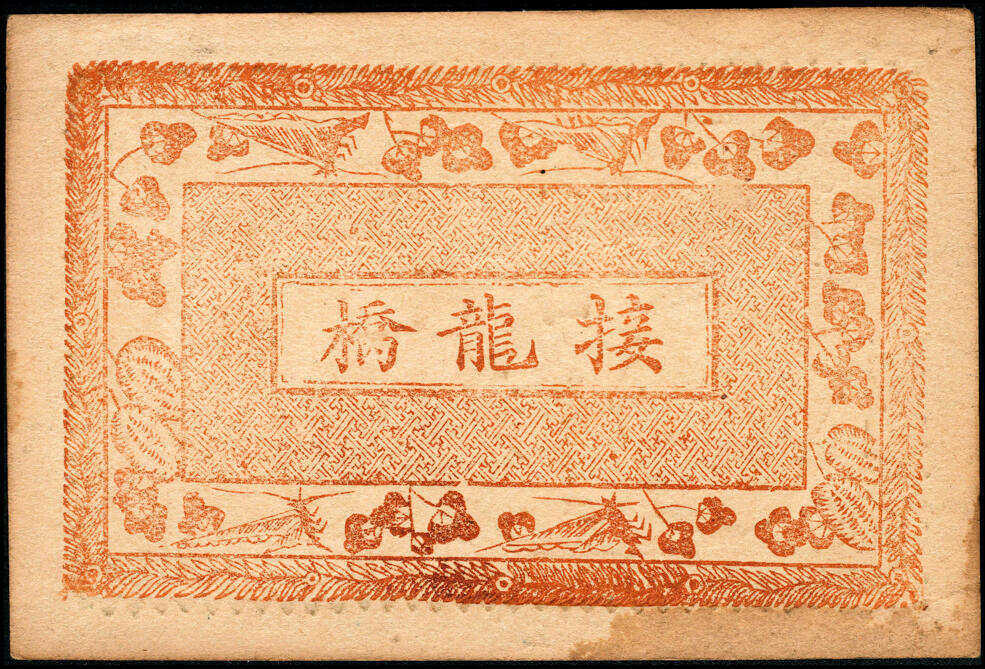 接龍橋